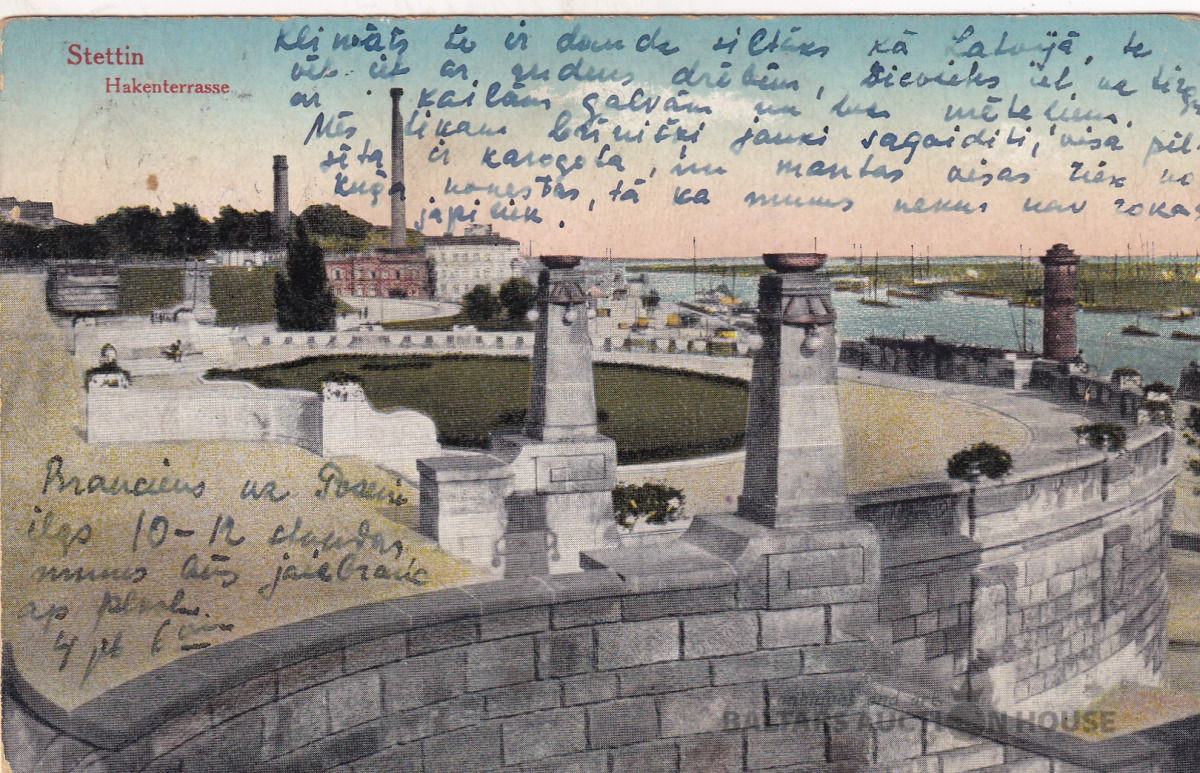 Stettin
Hakenterrasse
Klimāts te ir daudz siltāks kā Latvijā, te
vēl iet ar rudens drēbēm, sievietes iet uz
ar kailām galvām un bez mēteļiem.
Mēs tikām brīnišķi jauki sagaidīti, visa pil-
sēta ir karogota, un mantas visas tiek no
kuģa nonestas, tā ka mums nekas nav
jāpiliek.
Brauciens uz Poseni
ilgs 10-12 stundas,
mums būs jāizbrauc
ap plkst.
4 pt 6
BALTARS AUCTION HOUSE